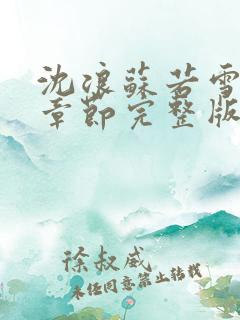 沈浪蘇若雪
章節完整版
徐叔威
未经同意禁止转载